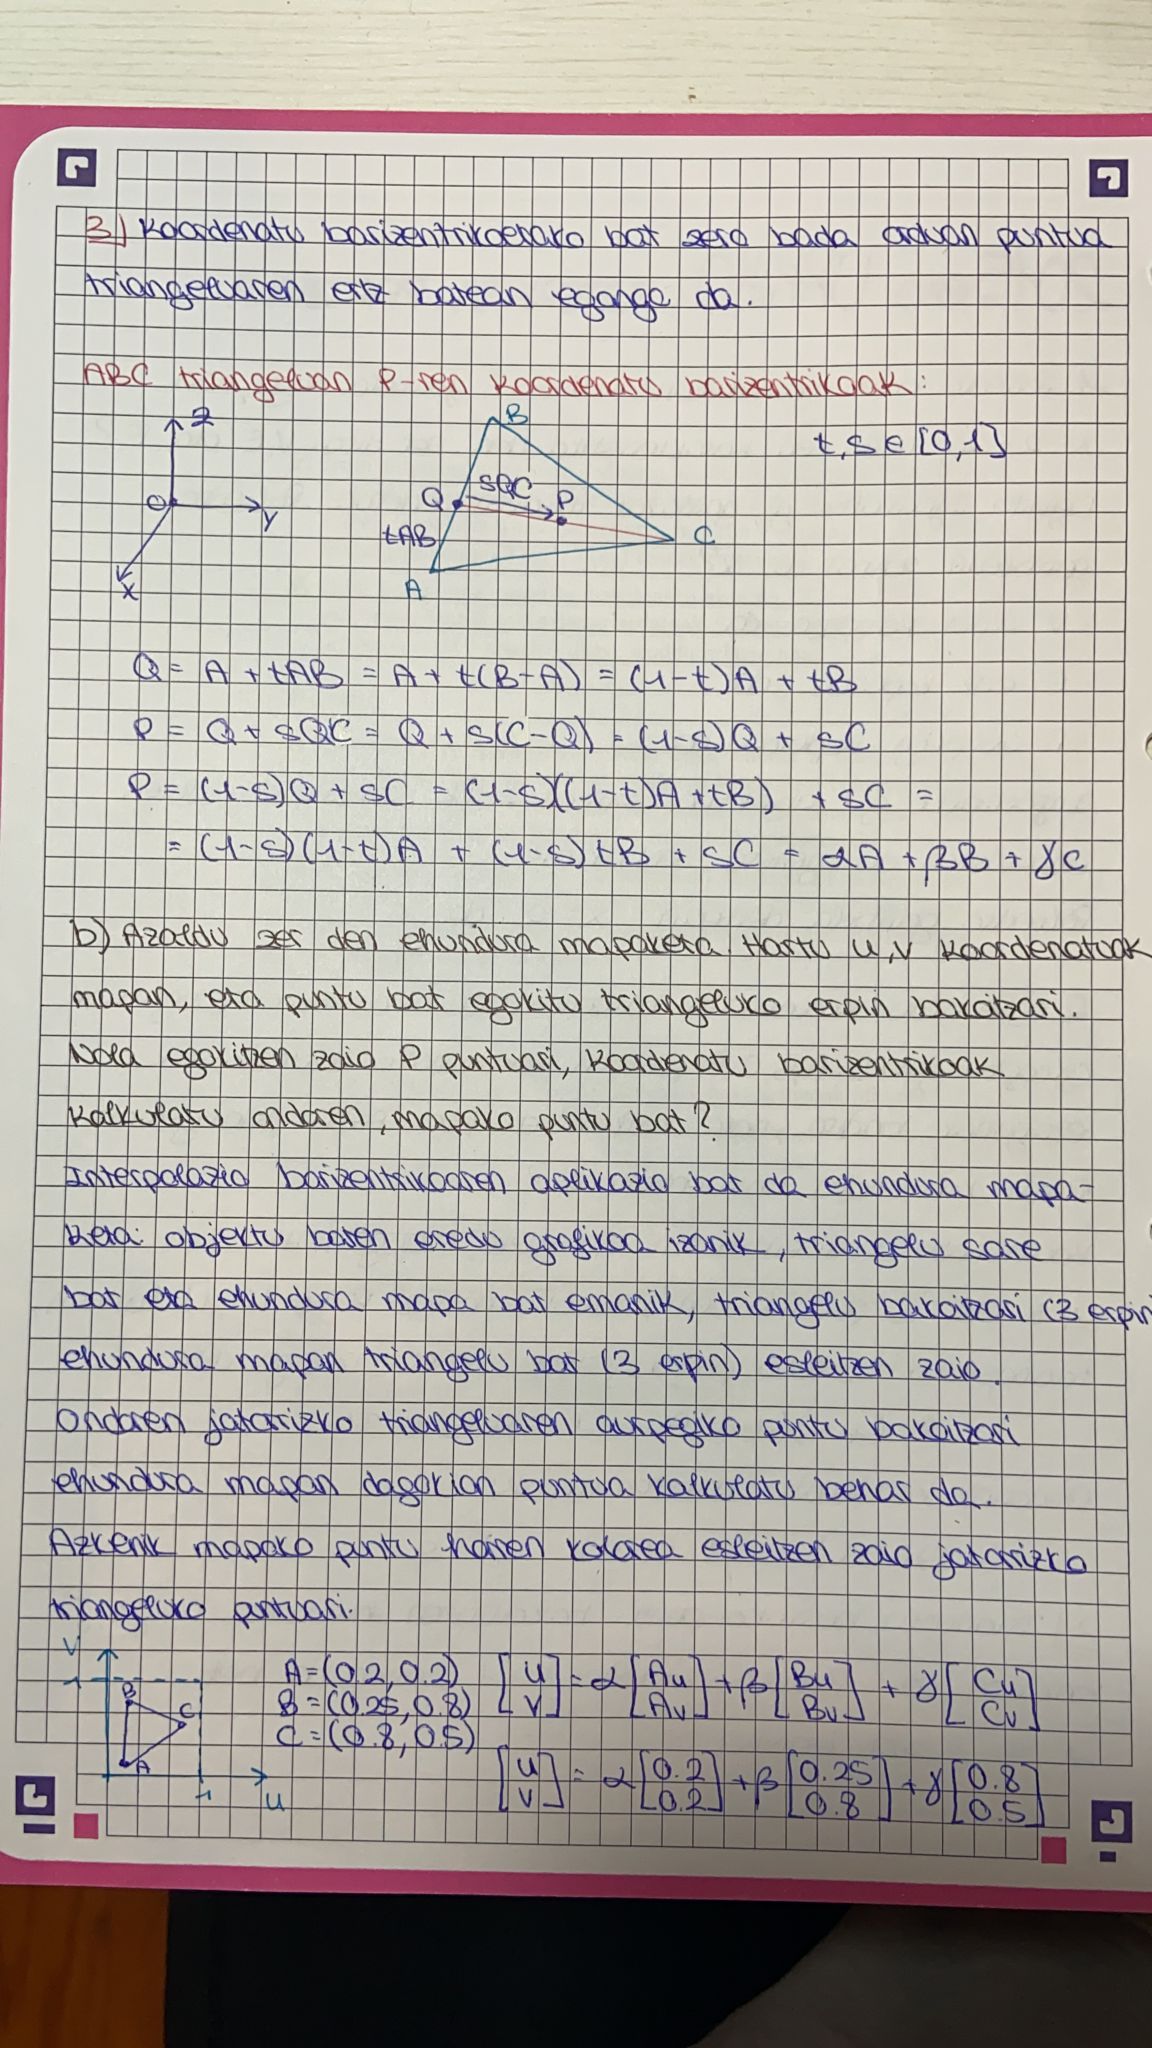 3) Koordenatu barizentrikoetako bat zero bada orduan puntua
triangeluaren ertz batean egongo da.
ABC triangeluan P-ren koordenatu barizentrikoak:
Z
B
t, s ∈ [0,1]
O
Y
Q
sQC
P
tAB
C
X
A
Q = A + tAB = A + t(B-A) = (1-t)A + tB
P = Q + sQC = Q + s(C-Q) = (1-s)Q + sC
P = (1-s)Q + sC = (1-s)((1-t)A + tB) + sC =
= (1-s)(1-t)A + (1-s)tB + sC = αA + βB + γC
b) Azaldu zer den ehundura mapaketa. Hartu u,v koordenatuak
mapan, eta puntu bat egokitu triangeluko erpin bakoitzari.
Nola egokitzen zaio P puntuari, koordenatu barizentrikoak
kalkulatu ondoren, mapako puntu bat?
Interpolazio barizentrikoaren aplikazio bat da ehundura mapa-
keta: objektu baten eredu grafikoa izanik, triangelu sare
bat eta ehundura mapa bat emanik, triangelu bakoitzari (3 erpin
ehundura mapan triangelu bat (3 erpin) esleitzen zaio.
Ondoren jatorrizko triangeluaren aurpegiko puntu bakoitzari
ehundura mapan dagokion puntua kalkulatu behar da.
Azkenik mapako puntu horren kolorea esleitzen zaio jatorrizko
triangeluko puntuari.
V
1
B
C
A
1
u
A = (0.2, 0.2)
B = (0.25, 0.8)
C = (0.8, 0.5)
[u v] = α [Au Av] + β [Bu Bv] + γ [Cu Cv]
[u v] = α [0.2 0.2] + β [0.25 0.8] + γ [0.8 0.5]